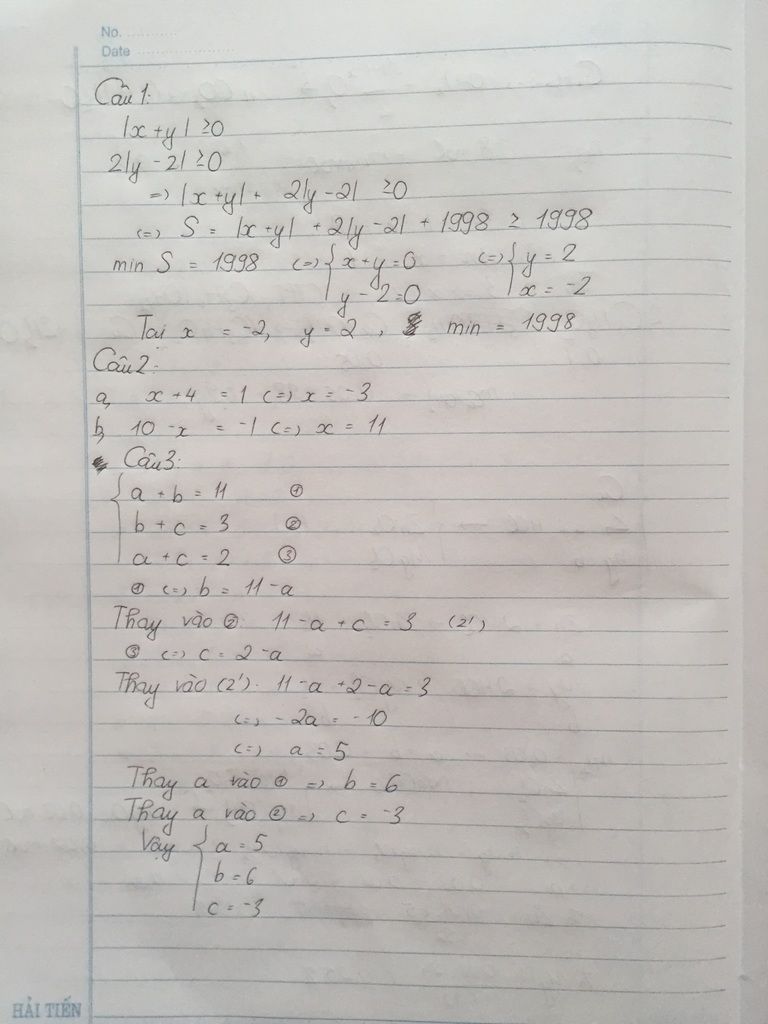 No. ............
Date ........................
Câu 1:
|x + y| ≥0
2|y - 2| ≥0
=> |x +y| + 2|y - 2| ≥0
<=> S = |x +y| + 2|y - 2| + 1998 ≥ 1998
min S = 1998 <=> { x + y = 0 <=> { y = 2
y - 2 = 0 x = -2
Tại x = -2, y = 2 , min = 1998
Câu 2:
a, x + 4 = 1 <=> x = -3
b, 10 - x = -1 <=> x = 11
Câu 3:
{ a + b = 11 ①
b + c = 3 ②
a + c = 2 ③
① <=> b = 11 - a
Thay vào ② 11 - a + c = 3 (2')
③ <=> c = 2 - a
Thay vào (2'). 11 - a + 2 - a = 3
<=> - 2a = - 10
<=> a = 5
Thay a vào ① => b = 6
Thay a vào ② => c = -3
Vậy { a = 5
b = 6
c = -3
HẢI TIẾN